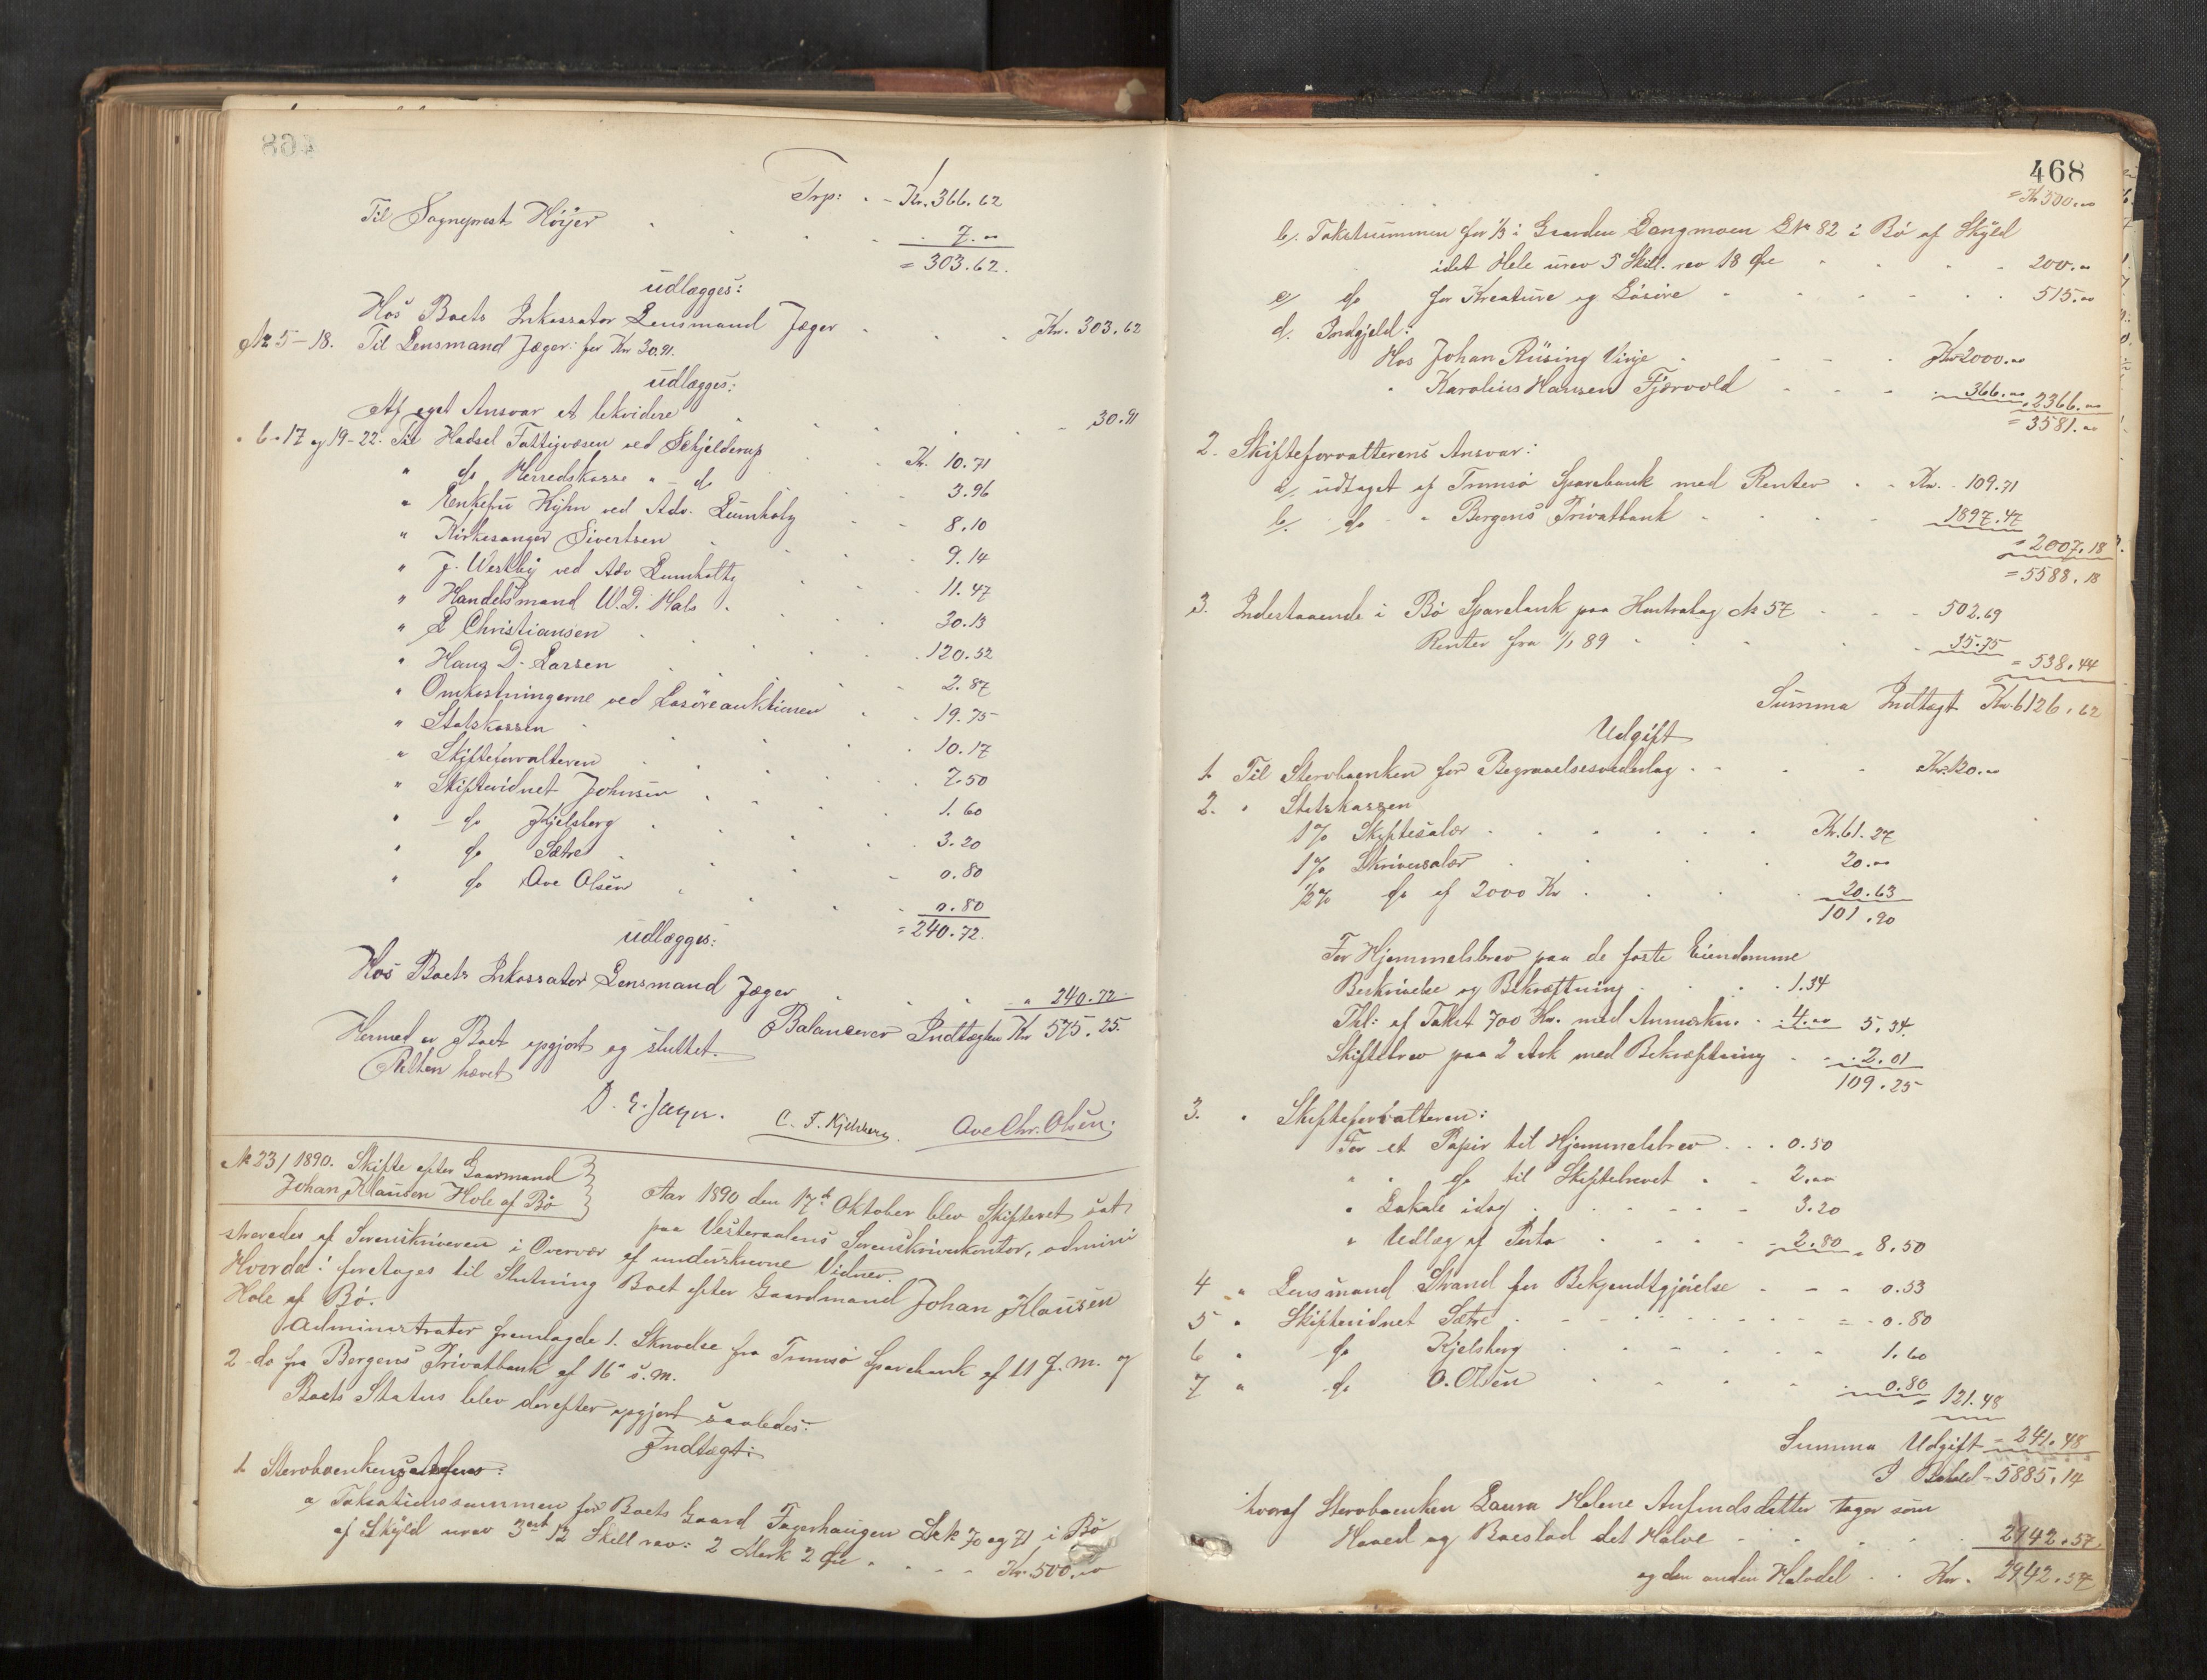 Trp: - Kr. 366.62
Til Sogneprest Höyer 7.00
= 303.62.
udlægges:
Hos Boets Inkassator Lensmand Jæger Kr. 303.62
№ 5-18. Til Lensmand Jæger: for Kr 30.91.
udlægges:
Af eget Ansvar at likvidere 30.91
" 6-17 og 19-22. Til Hadsel Fattigvæsen ved Schjelderup Kr. 10.71
" do Herredskasse " - do 3.96
" Enkefru Kyhn ved Adv. Lumholtz 8.10
" Kirkesanger Sivertsen 9.14
" J. Westby ved Adv Lumholtz 11.47
" Handelsmand W.D. Hals 30.13
" L Christiansen 120.52
" Hans D. Larsen 2.87
" Omkostningerne ved Løsöreauktionen 19.75
" Statskassen 10.17
" Skifteforvalteren 7.50
" Skiftevidnet Johnsen 1.60
" - do Kjelsberg 3.20
" do Sætre 0.80
" do Ove Olsen 0.80
= 240.72.
udlægges:
Hos Boets Inkassator Lensmand Jæger " 240.72
Balancerer Indtægten Kr 575.25.
Hermed er Boet opgjort og sluttet.
Retten hævet
D. E. Jæger. C. F. Kjelsberg. Ove Chr. Olsen.
№ 23/1890. Skifte efter Gaarmand
Johan Klausen Hole af Bö
Aar 1890 den 17de Oktober blev Skifteret sat
paa Vesteraalens Sorenskriverkontor, admini
streredes af Sorenskriveren i Overvær af underskrevne Vidner.
Hvorda: foretoges til Slutning Boet efter Gaardmand Johan Klausen
Hole af Bö.
Administrator fremlagde 1. Skrivelse fra Tromsö Sparebank af 11 f. m. og
2 do fra Bergens Privatbank af 16 s. m.
Boets Status blev derefter opgjort saaledes:
Indtægt:
1 Stervboenkens
a) Taxationssummen for Boets Gaard Fagerhaugen L№ 70 og 71 i Bö
af Skyld urev 3 ort 12 Skill rev: 2 Mark 2 Öre Kr. 500.00
468
= Kr 500.00
b). Takstsummen for 1/3 i Gaarden Langmoen L№ 82 i Bö af Skyld
idet Hele urev 5 Skill. rev 18 Öre 200.00
c) do for Kreature og Lösöre 515.00
d. Indgjeld:
Hos Johan Rüsing Vinje Kr 2000.00
" Karolius Hansen Fjærvold 366.00 2366.00
= 3581.00
2. Skifteforvalterens Ansvar:
a). udtaget af Tromsö Sparebank med Renter Kr. 109.71
b). do " Bergens Privatbank 1897.47
= 2007.18
= 5588.18
3. Indestaaende i Bö Sparebank paa Kontrabog № 57 502.69
Renter fra 1/1 89 35.75
= 538.44
Summa Indtægt Kr 6126.62
Udgift
1. Til Stervboenken for Begravelsesvederlag Kr. 120.00
2. " Statskassen
1% Skiftesalær Kr. 61.27
1% Skriversalær 20.00
1/2% do af 2000 Kr 20.63
101.90
For Hjemmelsbrev paa de faste Eiendomme
Beskrivelse og Bekræftning 1.34
Thl: af Takst 700 Kr. med Anmerkn. 4.00 5.34
Skiftebrev paa 2 Ark med Bekræftning 2.01
109.25
3. " Skifteforvalteren:
For et Papir til Hjemmelsbrev 0.50
" " do til Skiftebrevet 2.00
" Lokale idag 3.20
" Udlæg af Porto 2.80 = 8.50
4 " Lensmand Strand for Bekjendtgjörelse 0.53
5 " Skiftevidnet Sætre 0.80
6 " do Kjelsberg 1.60
7 " do O. Olsen 0.80 = 121.48
Summa Udgift = 241.48
I Behold - 5885.14
hvoraf Stervboenken Laura Helene Anfindsdatter tager som
Hoved og Boeslod det Halve 2942.57.
og den anden Halvdel Kr. 2942.57